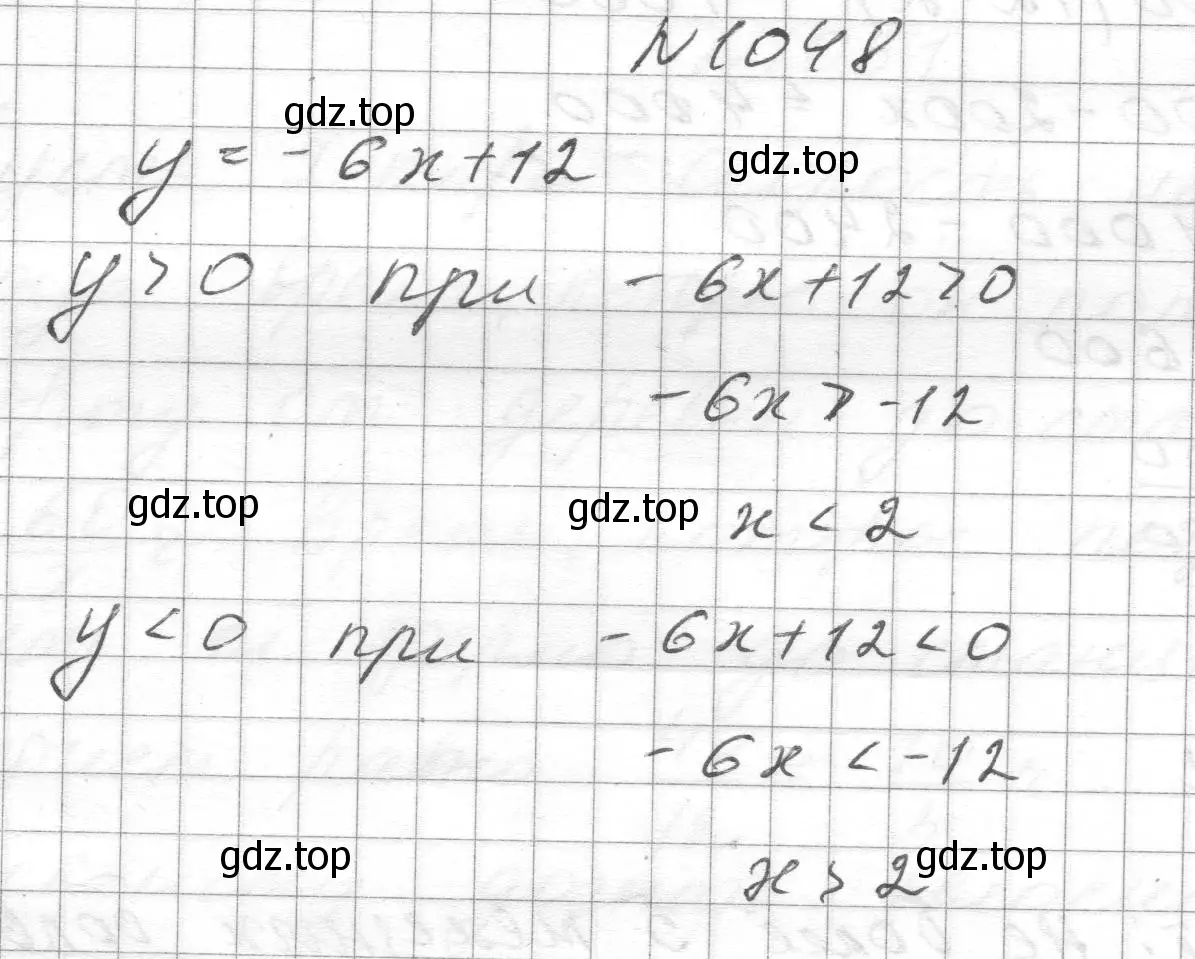 N1048
gdz.top
y = - 6x + 12
gdz.top
y > 0 при - 6x + 12 > 0
- 6x > -12
gdz.top
gdz.top
x < 2
y < 0 при - 6x + 12 < 0
- 6x < -12
gdz.top
x > 2
gdz.top